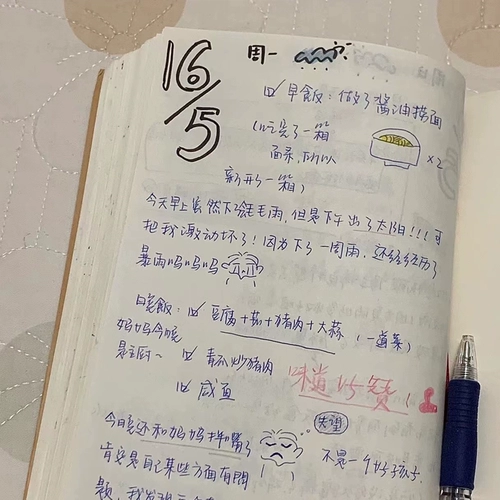 16/5 周一
☑ 早飯：做了酱油捞面
(吃完了一箱
面条，所以
新开一箱)
×2
今天早上虽然下了毛毛雨，但是下午出了太阳!!!可
把我激动坏了！因为下了一周雨，还经历了
暴雨呜呜呜
晚飯：☑ 豆腐+茄+猪肉+大蒜 (一道菜)
妈妈今晚
是主厨～ ☑ 青瓜炒猪肉
☑ 咸鱼
味道好赞！
今日晚还和妈妈拌嘴了
失望
肯定是自己某些方面有問
不是一个好孩子
题，我